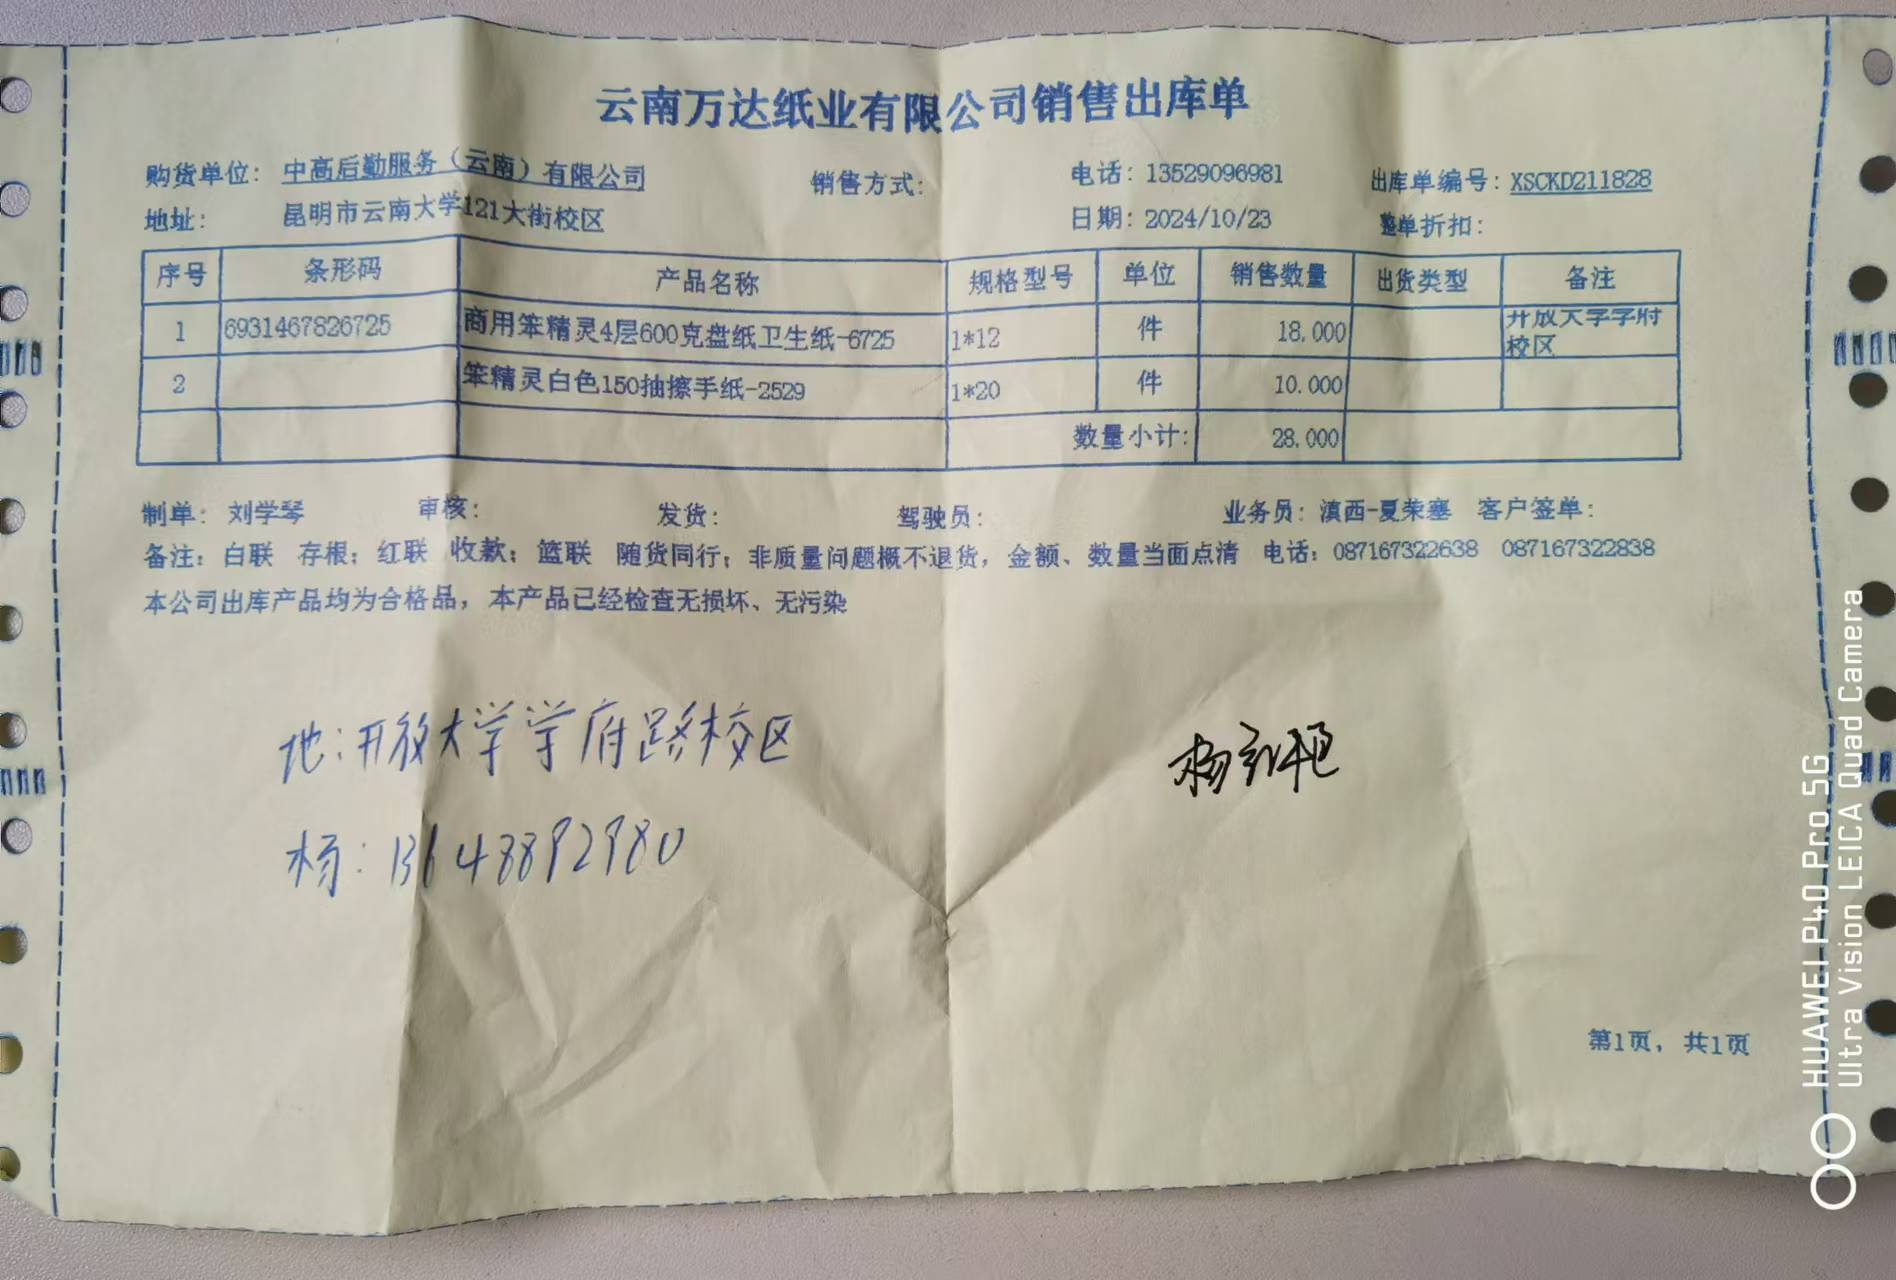 云南万达纸业有限公司销售出库单
购货单位: 中高后勤服务（云南）有限公司 销售方式: 电话: 13529096981 出库单编号: XSCKD211828
地址: 昆明市云南大学121大街校区 日期: 2024/10/23 整单折扣:
序号 条形码 产品名称 规格型号 单位 销售数量 出货类型 备注
1 6931467826725 商用笨精灵4层600克盘纸卫生纸-6725 1*12 件 18.000 开放大学学府
校区
2 笨精灵白色150抽擦手纸-2529 1*20 件 10.000
数量小计: 28.000
制单: 刘学琴 审核: 发货: 驾驶员: 业务员: 滇西-夏荣塞 客户签单:
备注: 白联 存根; 红联 收款; 篮联 随货同行; 非质量问题概不退货, 金额、数量当面点清 电话: 087167322638 087167322838
本公司出库产品均为合格品, 本产品已经检查无损坏、无污染
地:开放大学学府路校区
杨
杨: 13648892980
第1页, 共1页
HUAWEI P40 Pro 5G
Ultra Vision LEICA Quad Camera